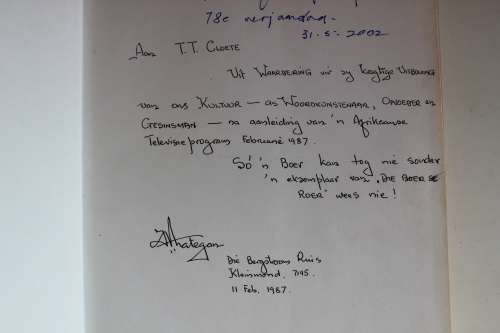 78e verjaardag.
31.5.2002
Aan T.T. CLOETE
UIT WAARDERING vir sy kragtige UITBOUING
van ons KULTUUR — as WOORDKUNSTENAAR, OPVOEDER en
GESINSMAN — na aanleiding van 'n Afrikaanse
Televisieprogram Februarie 1987.
Só 'n Boer kan tog nie sonder
'n eksemplaar van "DIE BOER SE
ROER" wees nie!
Die Bergstroom Huis
Kleinmond, 7195.
11 Feb. 1987.